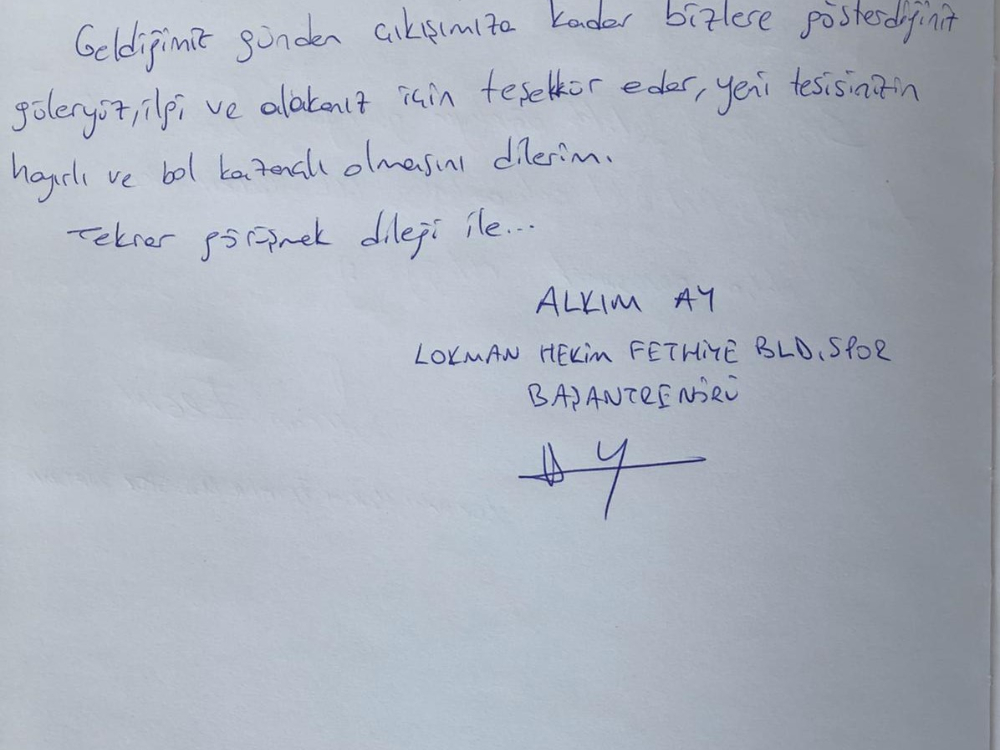 Geldiğimiz günden çıkışımıza kadar bizlere gösterdiğiniz
güleryüz, ilgi ve alakanız için teşekkür eder, yeni tesisinizin
hayırlı ve bol kazançlı olmasını dilerim.
Tekrar görüşmek dileği ile...
ALKIM AY
LOKMAN HEKİM FETHİYE BLD. SPOR
BAŞANTRENÖRÜ